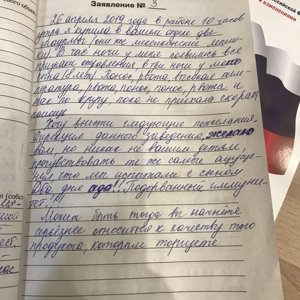 Заявление № 3
26 апреля 2019 года в районе 10 часов
утра я купила в вашем отделе две
шаурмы (они же мексиканский
). В час ночи у меня появились все
признаки отравления, в три ночи у моего
сына (8 лет). Понос, рвота, высокая тем-
пература, рвота, понос, понос, рвота и
так по кругу, пока не приехала скорая
помощь.
Хочу внести следующие пожелания.
данного заведения, желаю
вам, но никак не вашим детям,
прочувствовать те же самые ощуще-
ния, что мы испытали с сыном
Два дня ада!!! Подорванный иммуни-
тет!!!
Может быть тогда вы начнёте
серьёзнее относиться к качеству того
продукта, которым торгуете